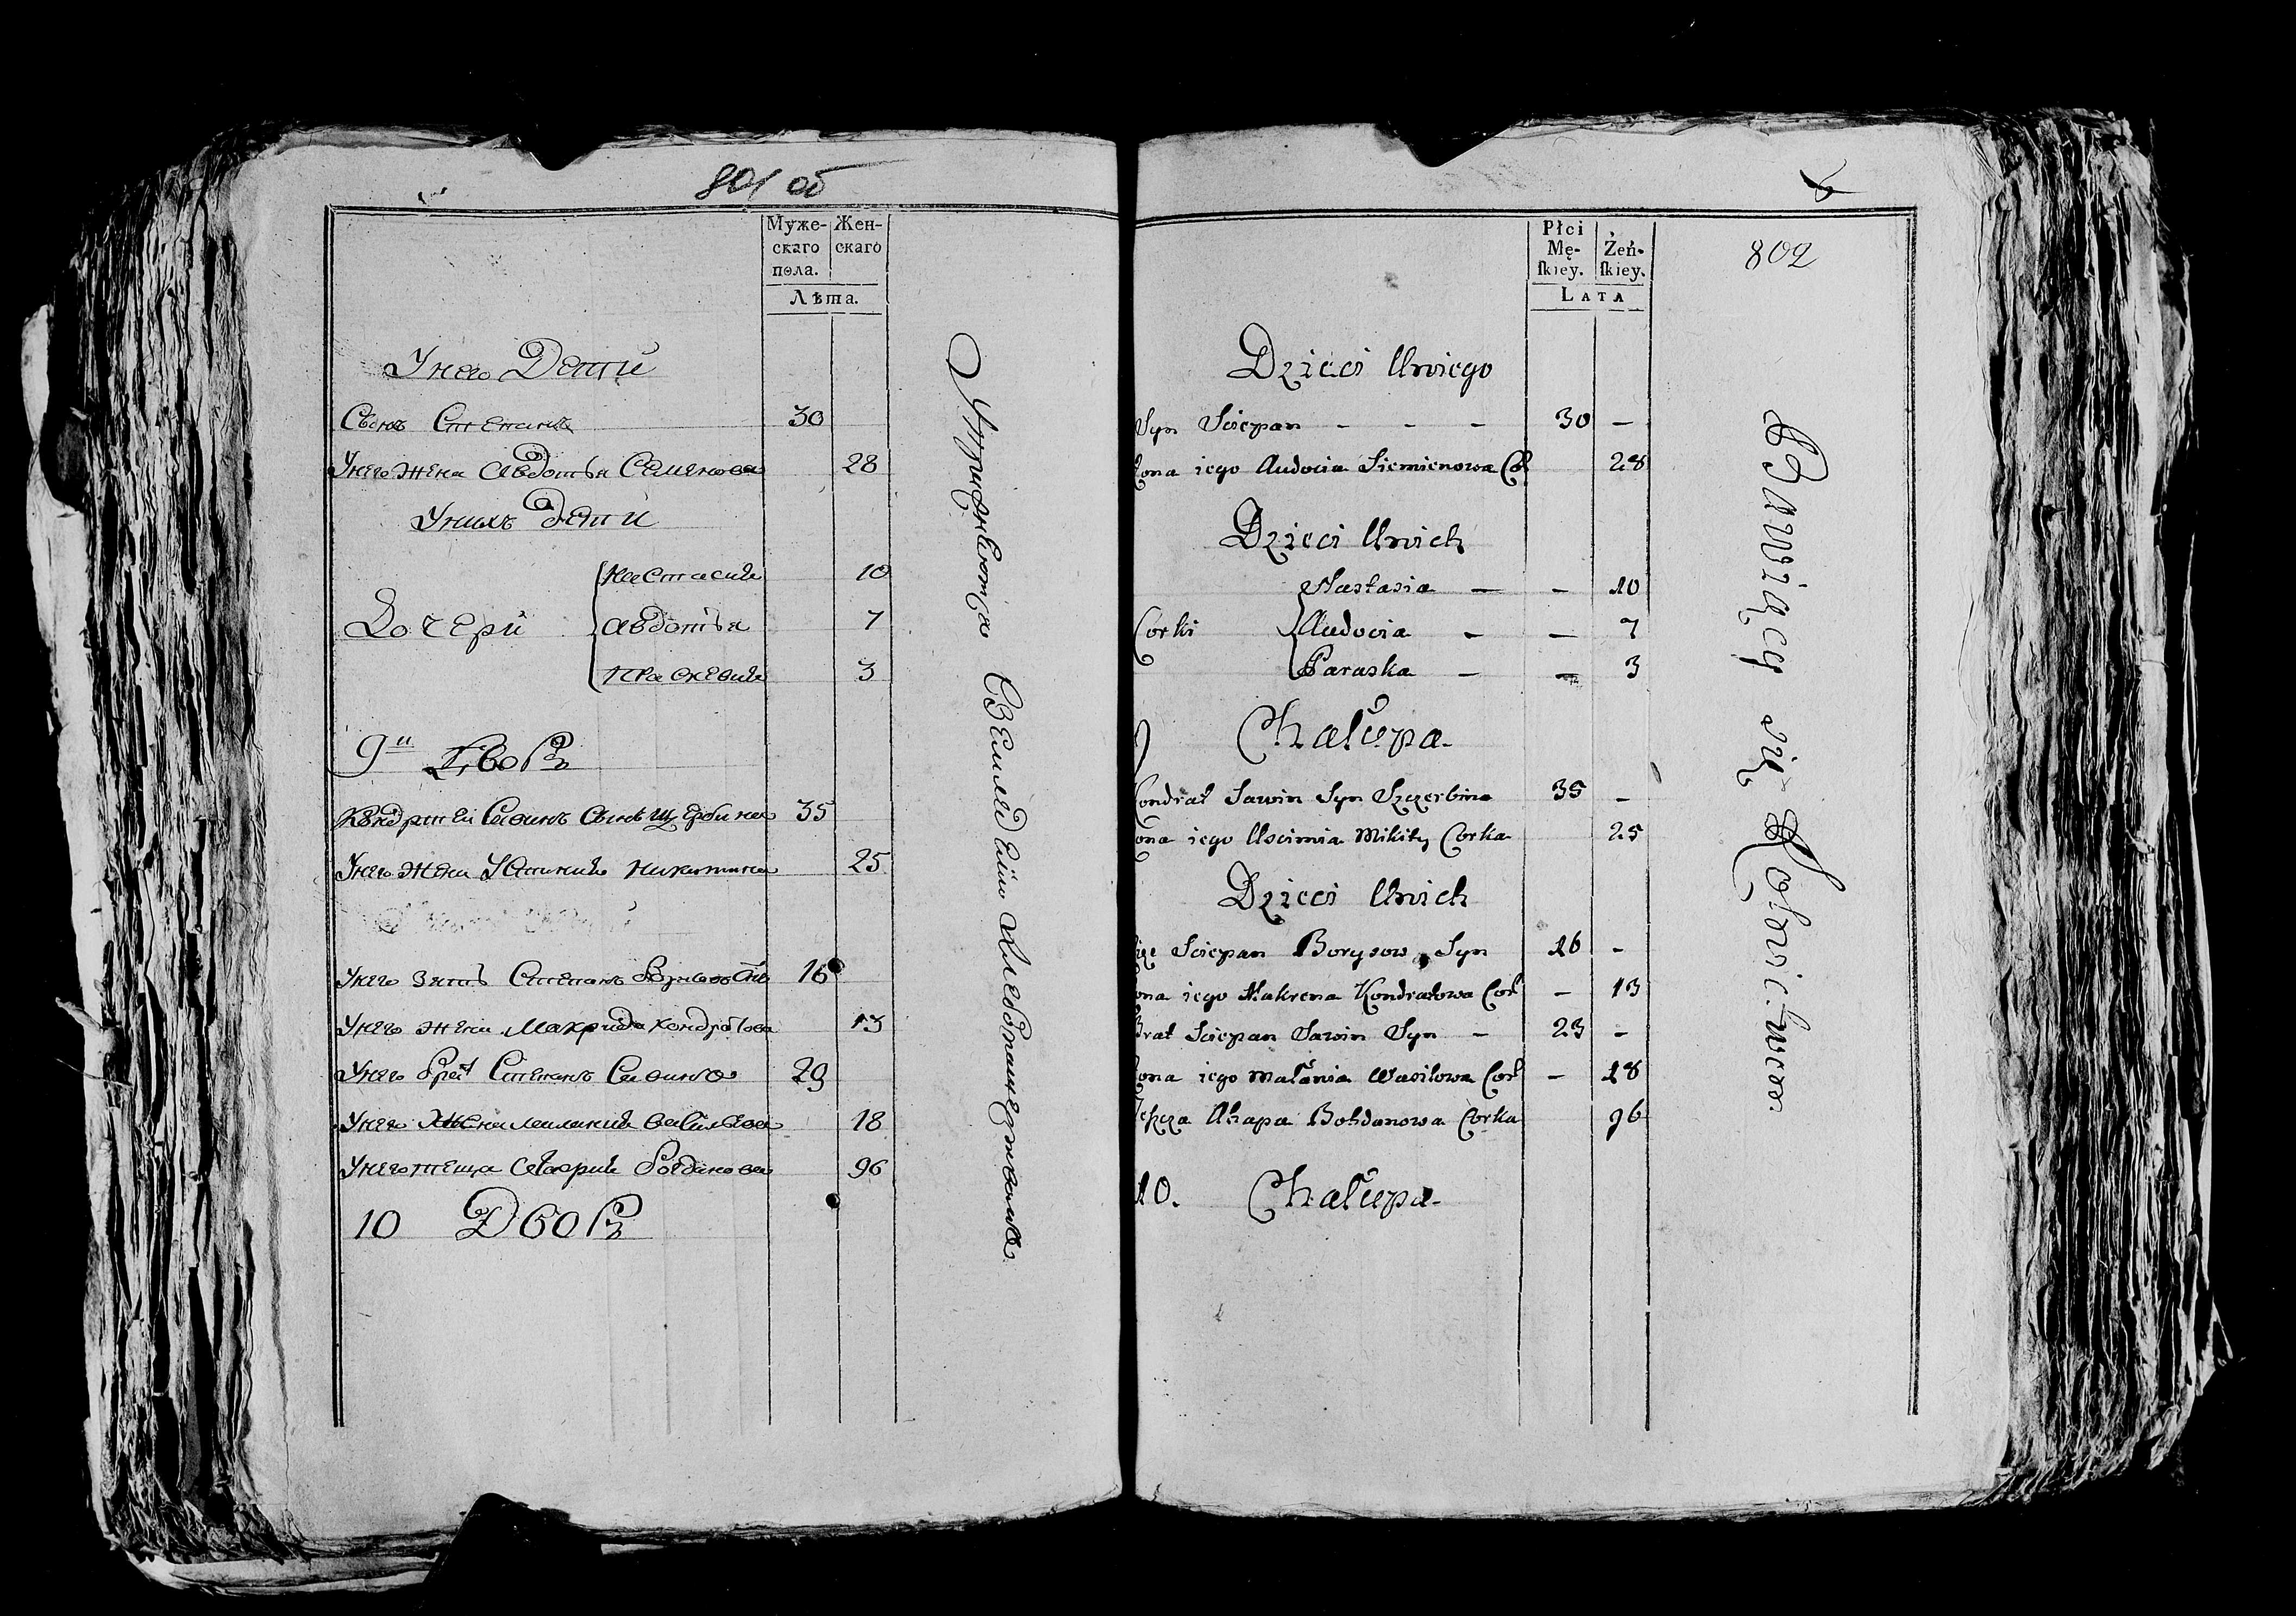 801 об
Муже-
скаго
пола.
Жен-
скаго
Лѣта.
У него Дети
Сынъ Степанъ 30
У него жена Авдотья Семенова 28
У нихъ дети
Настасия 10
Дочери Авдотья 7
Прасковия 3
9й Дворъ
Кондратей Савинъ Сынъ Щербина 35
У него жена Устиния Никитина 25
У него зять Степанъ Борисовъ Сынъ 16
У него жена Макрида Кондратова 13
У него братъ Степанъ Савинъ 29
У него Жена Малания Васильева 18
У него теща Богданова 96
10 Дворъ
Упражняютца Земледелием и Хлебопашеством
Płci
Mę-
ſkiey.
Żeń-
ſkiey.
LATA
802
Dzieci Uniego
Syn Sciepan - - - 30 -
Zona iego Audocia Siemienowa Co 28
Dzieci Unich
Nastasia — — 10
Corki Audocia - — 7
Paraska — — 3
9 Chałupa.
Condrat Sawin Syn Szczerbina 35 -
ona iego Uscimia Mikity Corka 25
Dzieci Unich
Sciepan Borysow Syn 16 -
ona iego Makrena Kondratowa Cor — 13
Brat Sciepan Sawin Syn — 29 -
Zona iego Małania Wasilowa Cor — 18
Ahapa Bohdanowa Corka 96
10. Chałupa.
Bawiący się